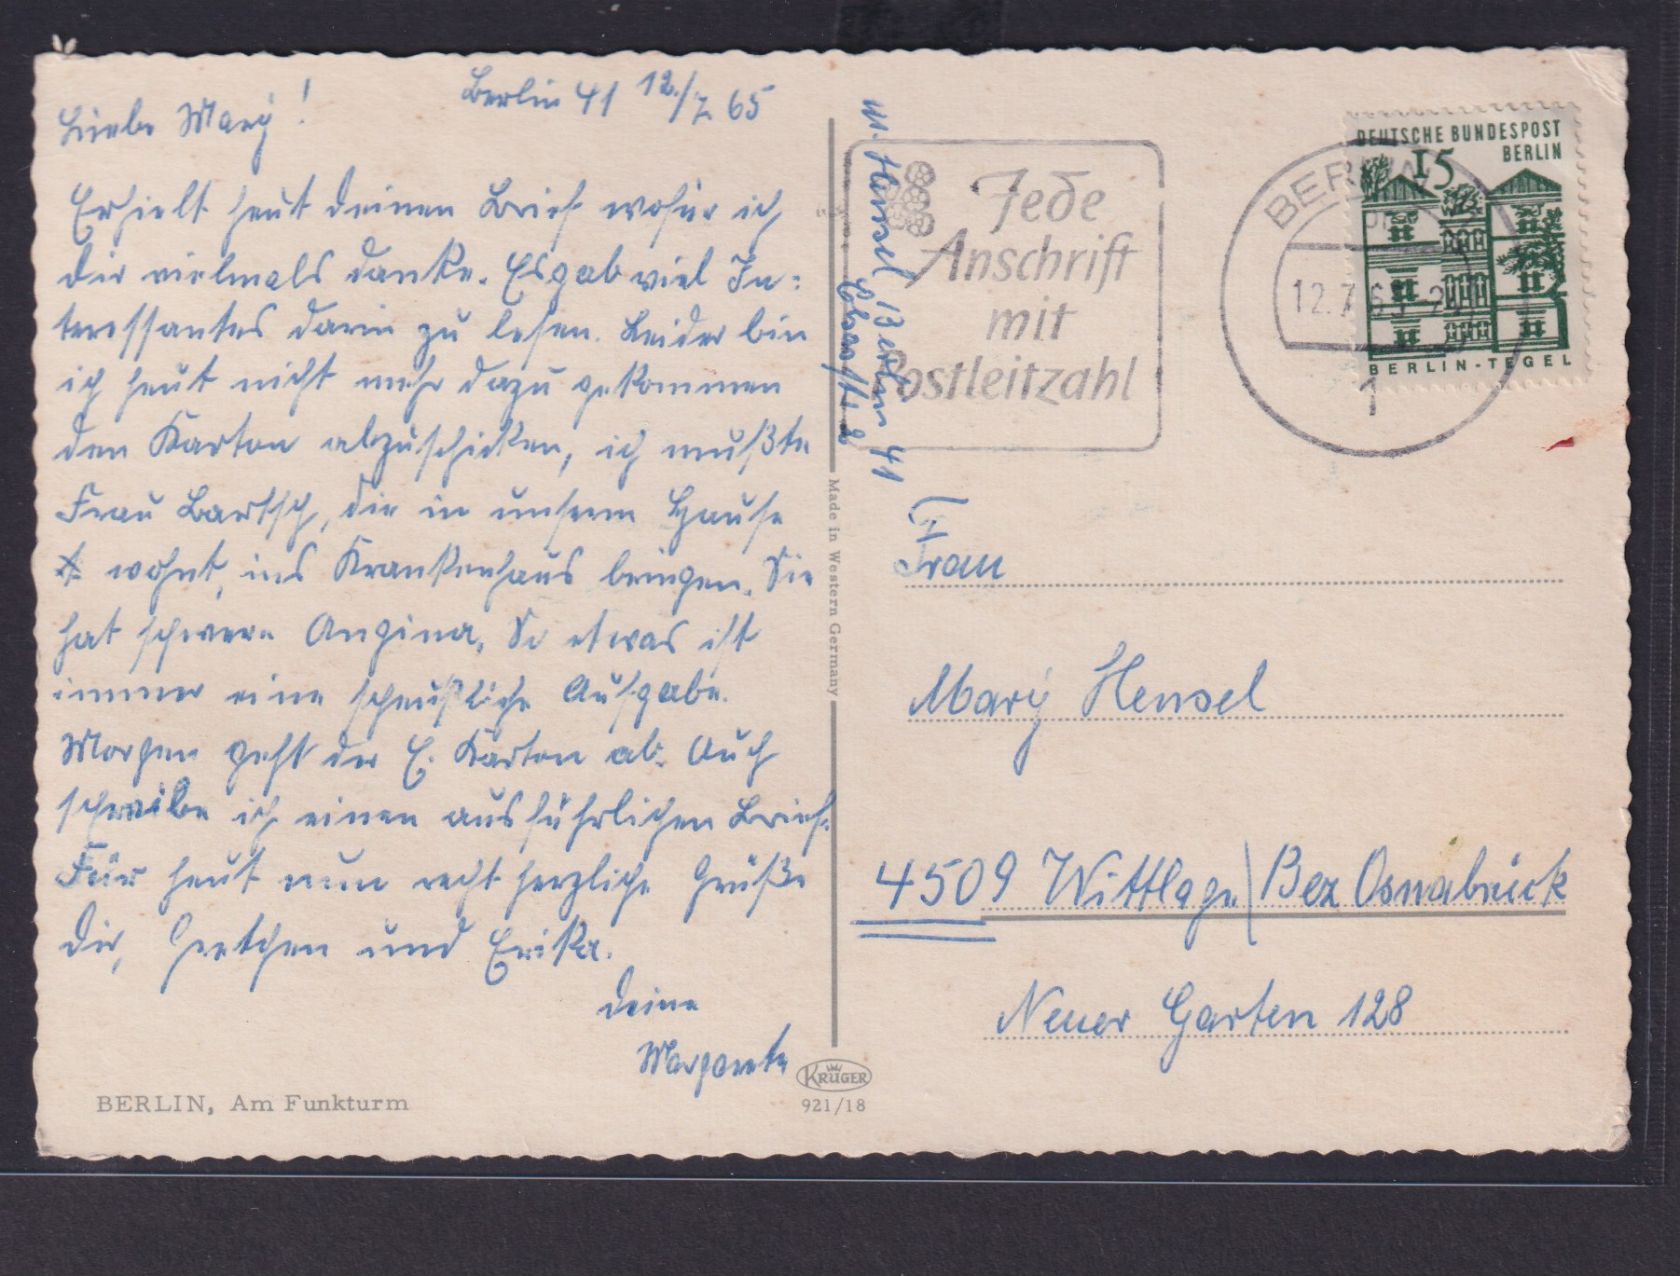 Berlin 41 12./7. 65
Liebe Marÿ!
Erhielt heut deinen Brief wofür ich
dir vielmals danke. Es gab viel In-
teressantes darin zu lesen. Leider bin
ich heut nicht mehr dazu gekommen
den Karton abzuschicken, ich mußte
Frau Bartsch, die in unserm Hause
wohnt, ins Krankenhaus bringen. Sie
hat schwere Angina. So etwas ist
immer eine scheußliche Aufgabe.
Morgen geht der E. Karton ab. Auch
schreibe ich einen ausführlichen Brief.
Für heut nun recht herzliche Grüße
dir, Gretchen und Erika.
deine
Margarete
BERLIN, Am Funkturm
Made in Western Germany
KRÜGER
921/18
M. Hensel, Berlin 41
Jede
Anschrift
mit
Postleitzahl
BERLIN
12.7.65
1
DEUTSCHE BUNDESPOST
BERLIN
15
BERLIN-TEGEL
Frau
Marÿ Hensel
4509 Wittlage / Bez Osnabrück
Neuer Garten 128